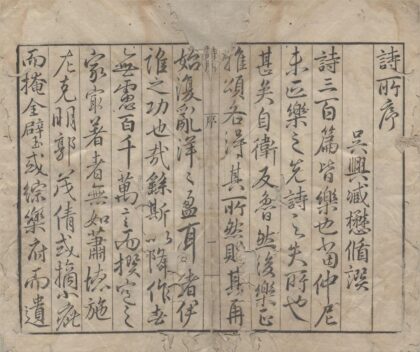 詩所序
吳興臧懋循譔
詩三百篇皆樂也當仲尼
未正樂之先詩之失所也
甚矣自衛反魯然後樂正
雅頌各得其所然則其再
序
一
始復亂洋〻盈耳伊
誰之功也哉繇斯以降作者
無慮百千萬〻而撰定之
家最著者無如蕭德施
左克明郭茂倩或摘小疵
而掩全璧或綜樂府而遺